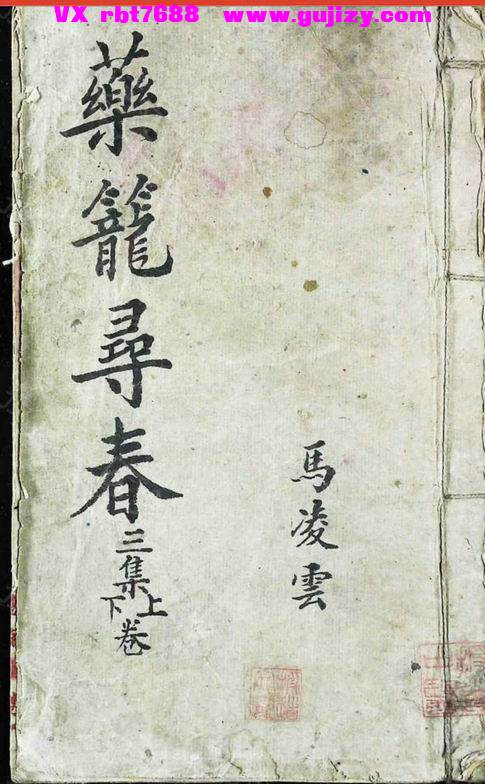 VX rbt7688 www.gujizy.com
藥籠尋春
三集
上下卷
馬凌雲